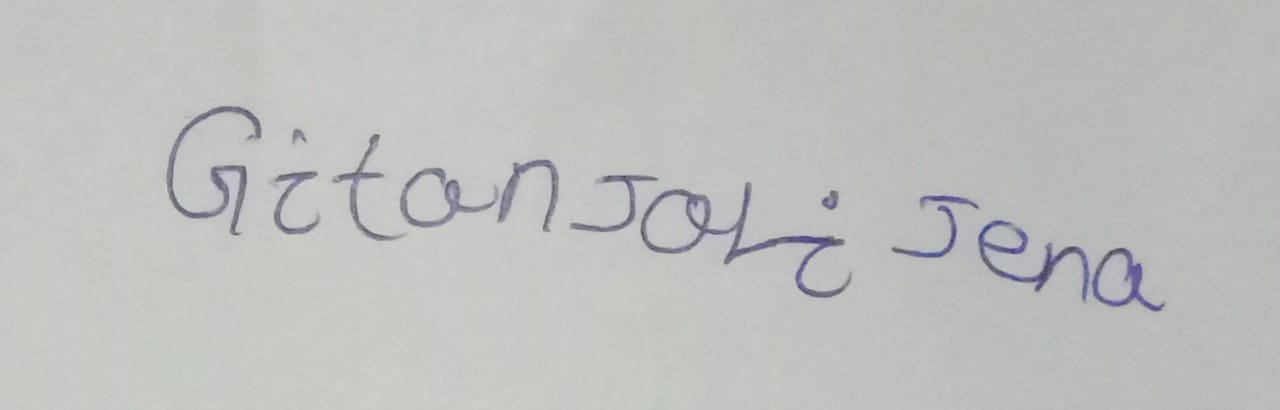 Gitanjali Jena